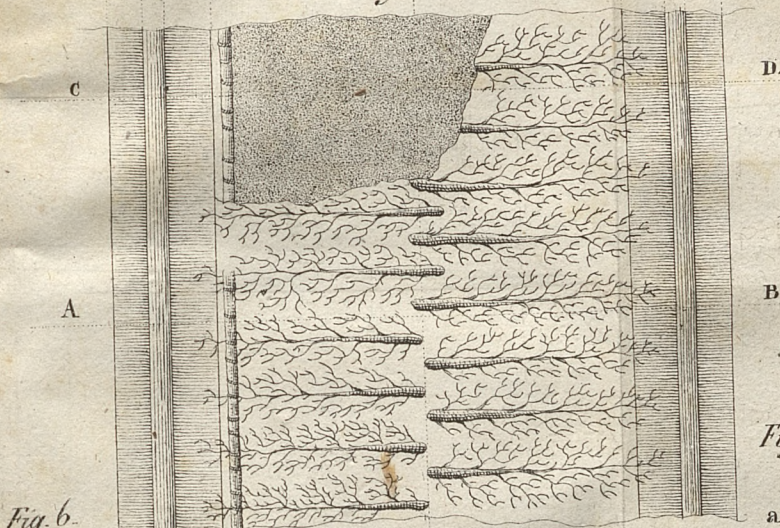 C
D.
A
B
Fig. 6.
a